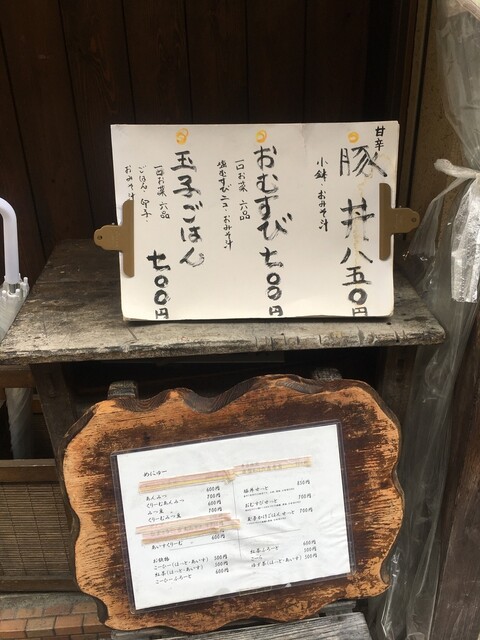 甘辛
豚丼 八五〇円
小鉢・おみそ汁
おむすび 七〇〇円
一口お菜 六品
塩むすび二コ・おみそ汁
玉子ごはん 七〇〇円
一口お菜 六品
ごはん・玉子・
おみそ汁
めにゅー
あんみつ 600円
くりーむあんみつ 700円
みつ豆 600円
くりーむみつ豆 700円
あいすくりーむ
お抹茶 500円
こーひー(ほっと・あいす) 500円
紅茶(ほっと・あいす) 500円
こーひーふろーと 600円
豚丼せっと 850円
おむすびせっと 700円
玉子かけごはんせっと 700円
紅茶ふろーと 600円
こーら 500円
ゆず茶(ほっと・あいす) 500円